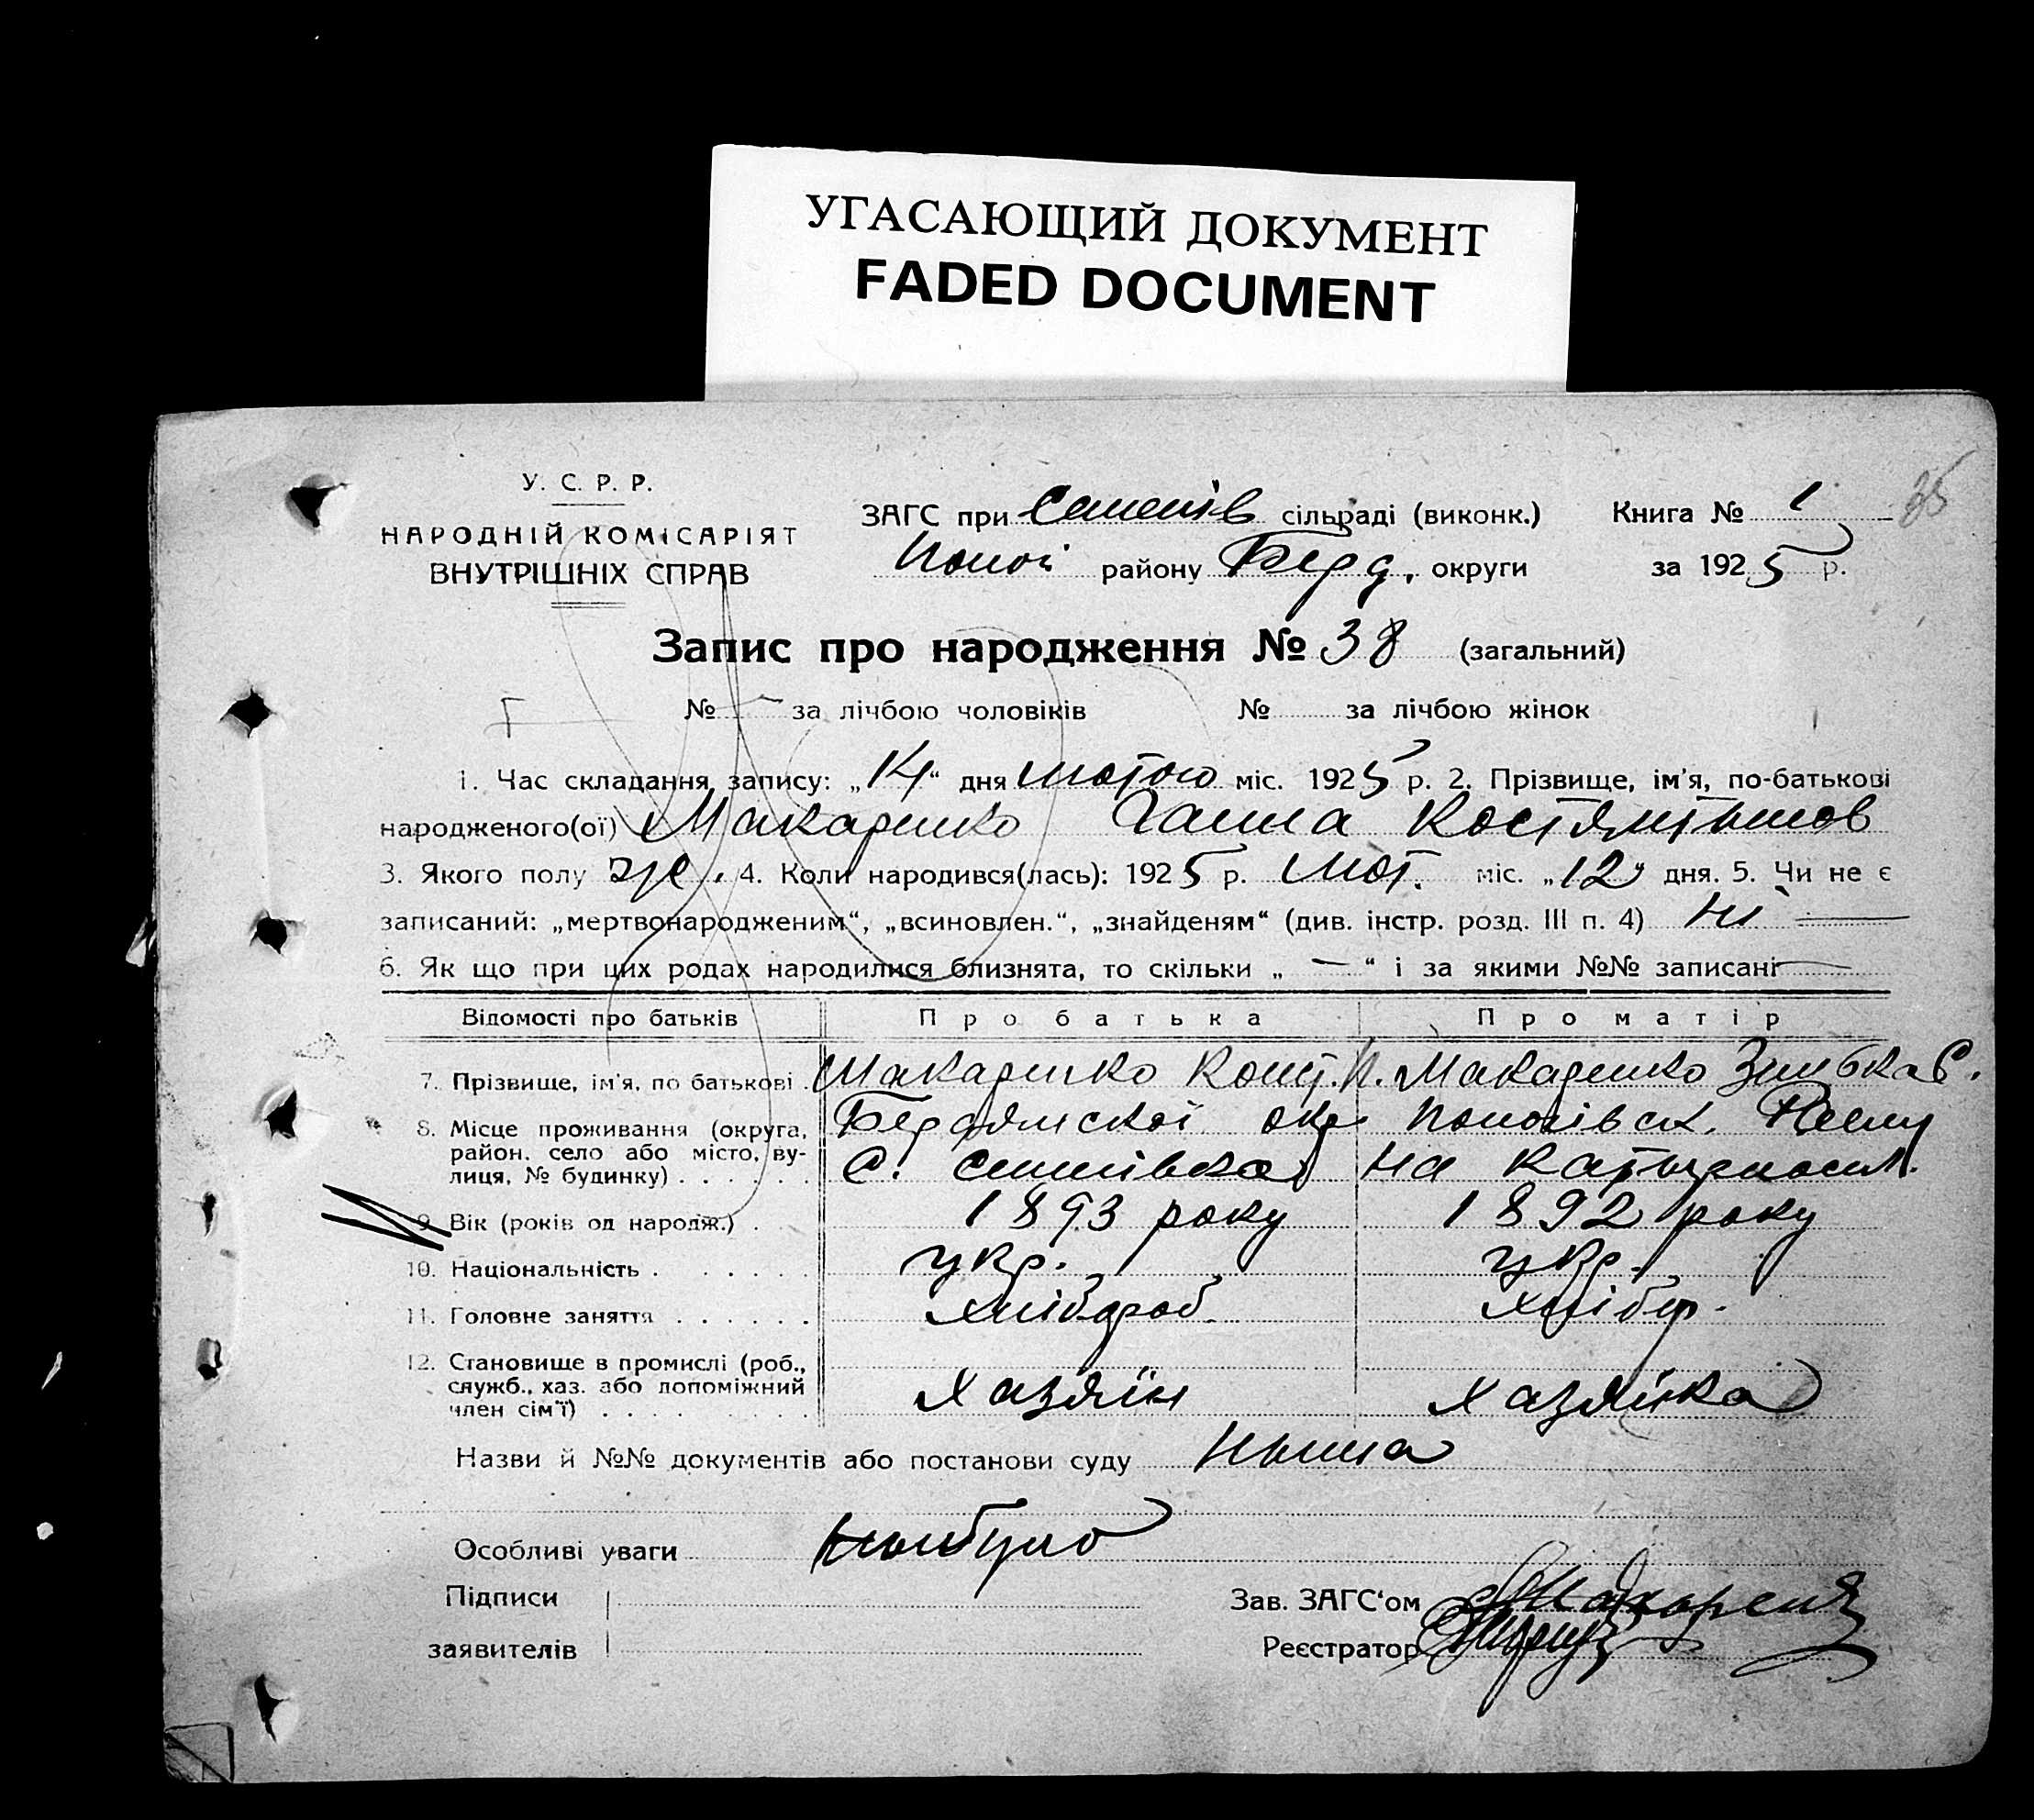 УГАСАЮЩИЙ ДОКУМЕНТ
FADED DOCUMENT
35
У. С. Р. Р.
НАРОДНІЙ КОМІСАРІЯТ
ВНУТРІШНІХ СПРАВ
ЗАГС при Семенів сільраді (виконк.) Книга № 1
району Берд. округи за 1925 р.
Запис про народження № 38 (загальний)
№ за лічбою чоловіків № за лічбою жінок
1. Час складання запису: „14“ дня лютого міс. 1925 р. 2. Прізвище, ім'я, по-батькові
народженого(ої) Макаренко Ганна
3. Якого полу же. 4. Коли народився(лась): 1925 р. лют. міс. „12“ дня. 5. Чи не є
записаний: „мертвонародженим“, „всиновлен.“, „знайденям“ (див. інстр. розд. III п. 4) Ні
6. Як що при цих родах народилися близнята, то скільки „ — “ і за якими №№ записані —
Відомості про батьків Про батька Про матір
7. Прізвище, ім'я, по батькові . Макаренко Конст. Макаренко
8. Місце проживання (округа, район. село або місто, вулиця, № будинку) . . . . . . Бердянської окр.
с. на
9. Вік (років од народж.) . 1893 року 1892 року
10. Національність . . . . . . укр. укр.
11. Головне заняття . . . . . . хлібороб. хлібор.
12. Становище в промислі (роб., служб., хаз. або допоміжний член сім'ї) . . . . . . Хазяїн Хазяйка
Назви й №№ документів або постанови суду Ныма
Особливі уваги Ныбуло
Підписи Зав. ЗАГС'ом
заявителів Реєстратор